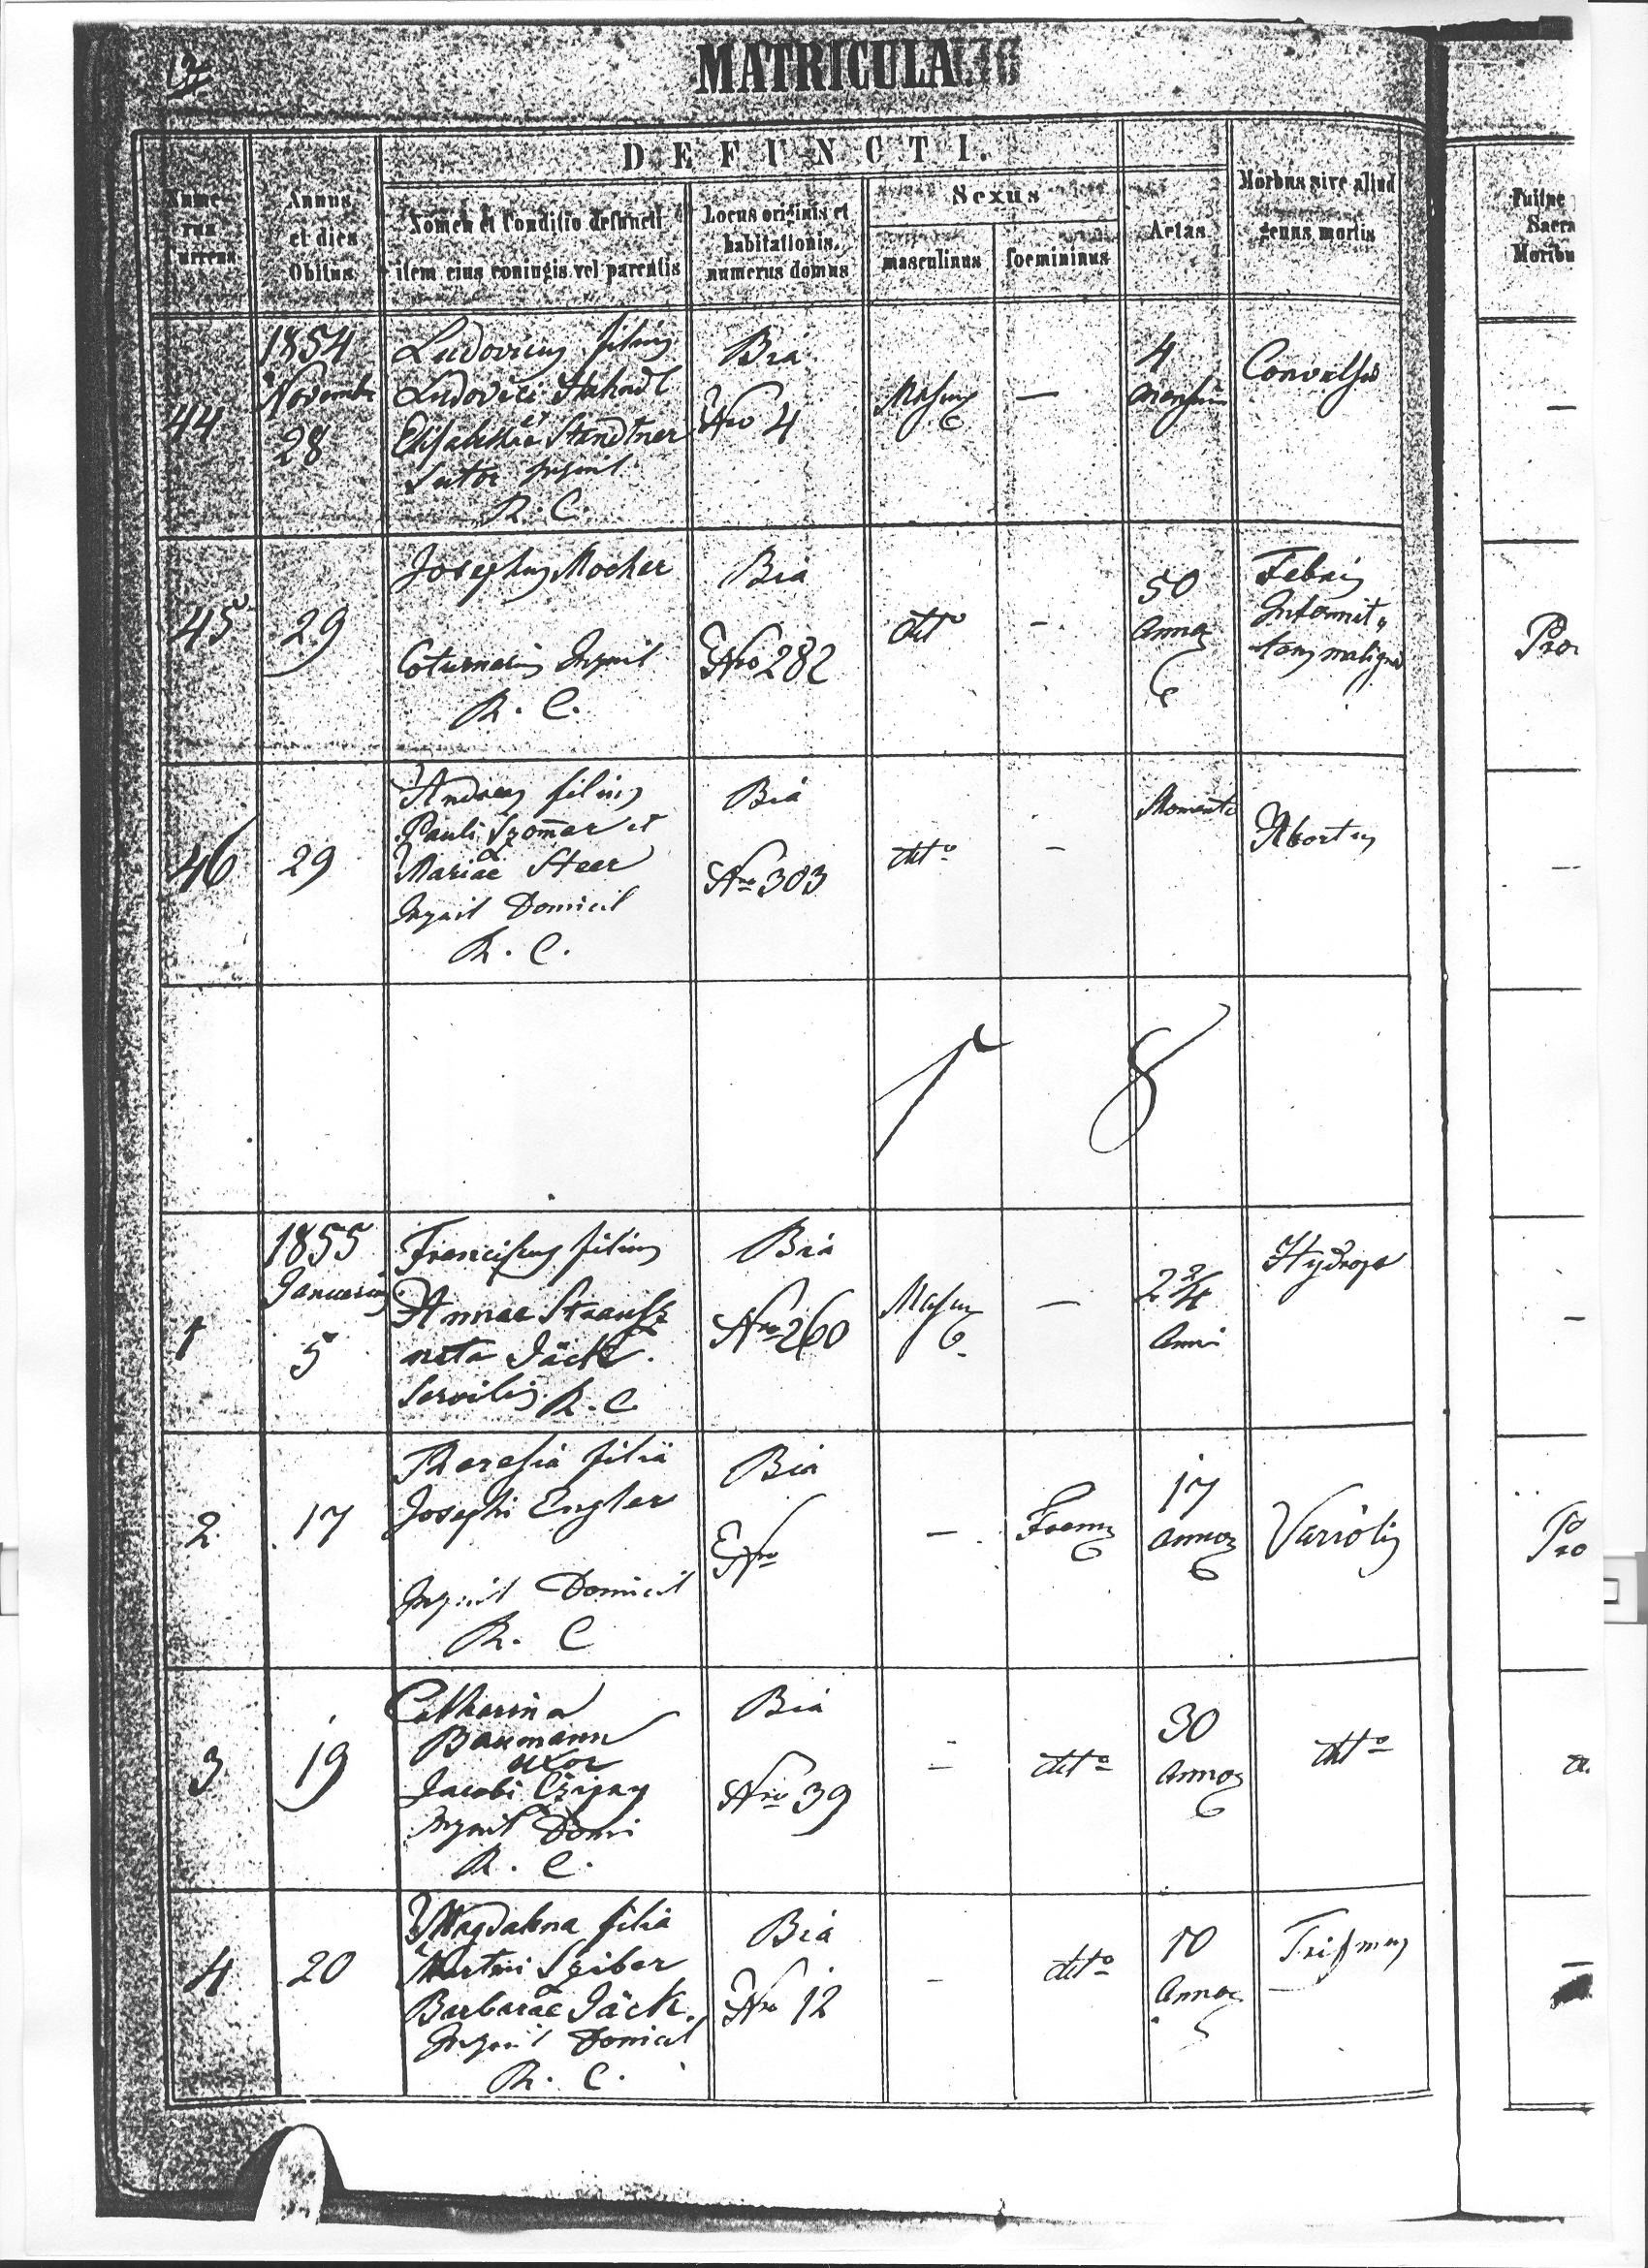 12
MATRICULA
DEFUNCTI.
Nume-
rus
Currens
Annus
et dies
Obitus
Nomen et Conditio defuncti
item eius coniugis vel parentis
Locus originis et
habitationis,
numerus domus
Sexus
masculinus
foemininus
Aetas
Morbus sive aliud
genus mortis
44
1854
Novembr
28
Ludovicus filius
Ludovici
et
Elisabethae Standtner
Sutor Inquil
R. C.
Bia
Nro 4
Masc
—
4
mensium
Convulsio
—
45
29
Josephus Mocher
Coturnarius Inquil
R. C.
Bia
Nro 282
detto
—
50
Annor
Febris
Intermit
tens maligna
46
29
Andreas filius
Pauli Szommer et
Mariae Steer
Inquil Domicil
R. C.
Bia
Nro 303
detto
—
Momento
Abortus
—
8
1
1855
Januarius
5
Franciscus filius
Annae Strausz
nata Jäck
Servilis R. C.
Bia
Nro 260
Masc
—
2 2/4
Anni
Hydrops
—
2
17
Theresia filia
Josephi Engler
Inquil Domicil
R. C
Bia
Nro
—
Foem
17
Annor
Variolis
3
19
Catharina
Baumann
uxor
Jacobi Czigny
Inquil Domi
R. C.
Bia
Nro 39
—
detto
30
Annor
detto
4
20
Magdalena filia
Martini Sziber
Barbarae Jäck
Inquil Domicil
R. C.
Bia
Nro 12
—
detto
10
Annor
Trismus
—
Fuitne
Sacra
Moribu
Pro
Pro